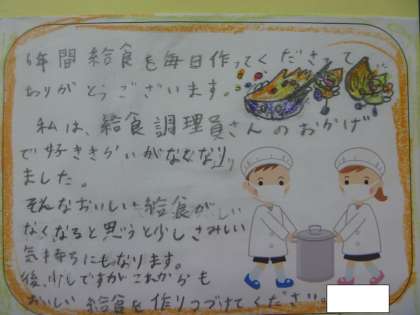 6年間給食を毎日作ってくださって
ありがとうございます。
私は、給食調理員さんのおかげ
で好ききらいがなくなり
ました。
そんなおいしい給食が
なくなると思うと少しさみしい
気持ちにもなります。
後、少しですがこれからも
おいしい給食を作りつづけてください。